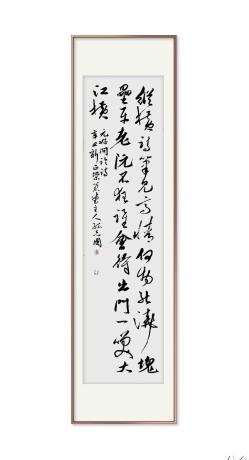 縱橫詩筆見高情何物能澆塊
壘平老阮不狂誰會得出門一笑大
江橫
元好問論詩
辛丑新正
主人